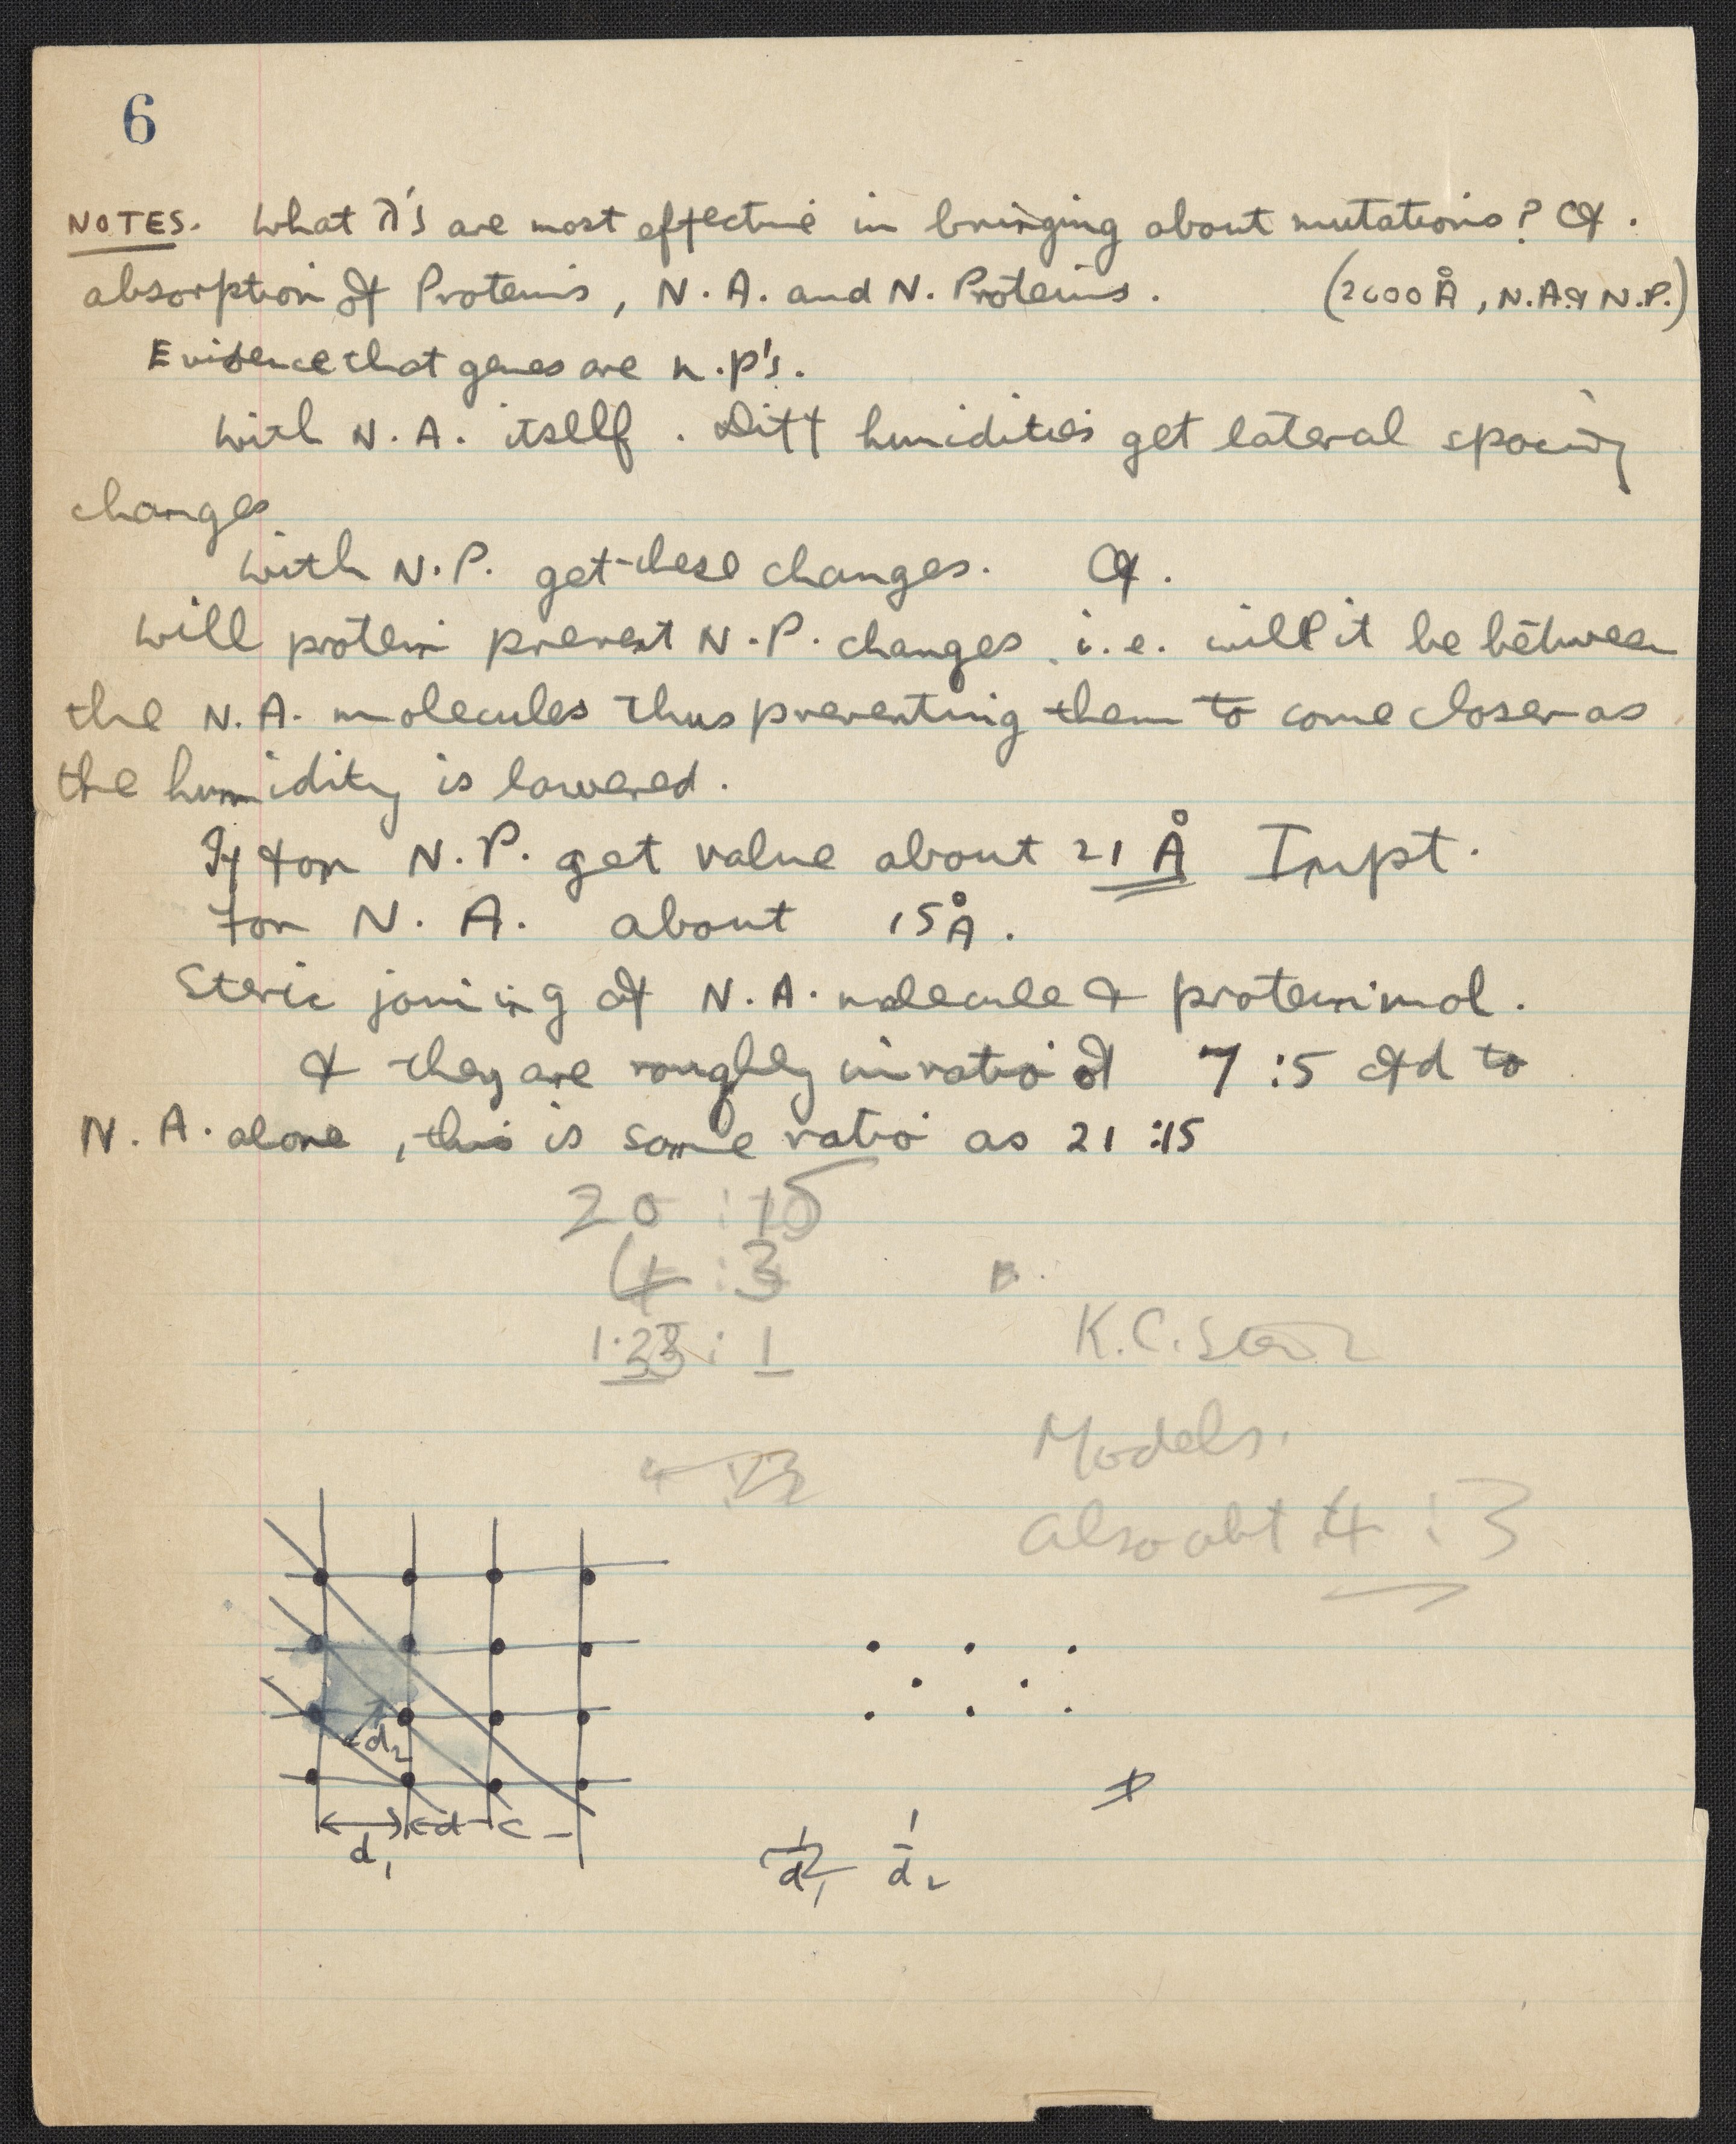 6
NOTES. What λ's are most effective in bringing about mutations? Cf.
absorption of Proteins, N.A. and N. Proteins. (2600 Å, N.A. & N.P.)
Evidence that genes are n.p's.
With N.A. itself. Diff humidities get lateral spacing
changes
With N.P. get these changes. Cf.
Will protein prevent N.P. changes i.e. will it be between
the N.A. molecules thus preventing them to come closer as
the humidity is lowered.
If for N.P. get value about 21 Å Impt.
for N.A. about 15 Å.
Steric joining of N.A. molecule & protein mol.
& they are roughly in ratio of 7 : 5 cfd to
N.A. alone, this is same ratio as 21 : 15
20 : 15
4 : 3
B.
1.33 : 1
K.C.
Models.
also abt 4 : 3
d2
d1 d
1/d1 1/d2